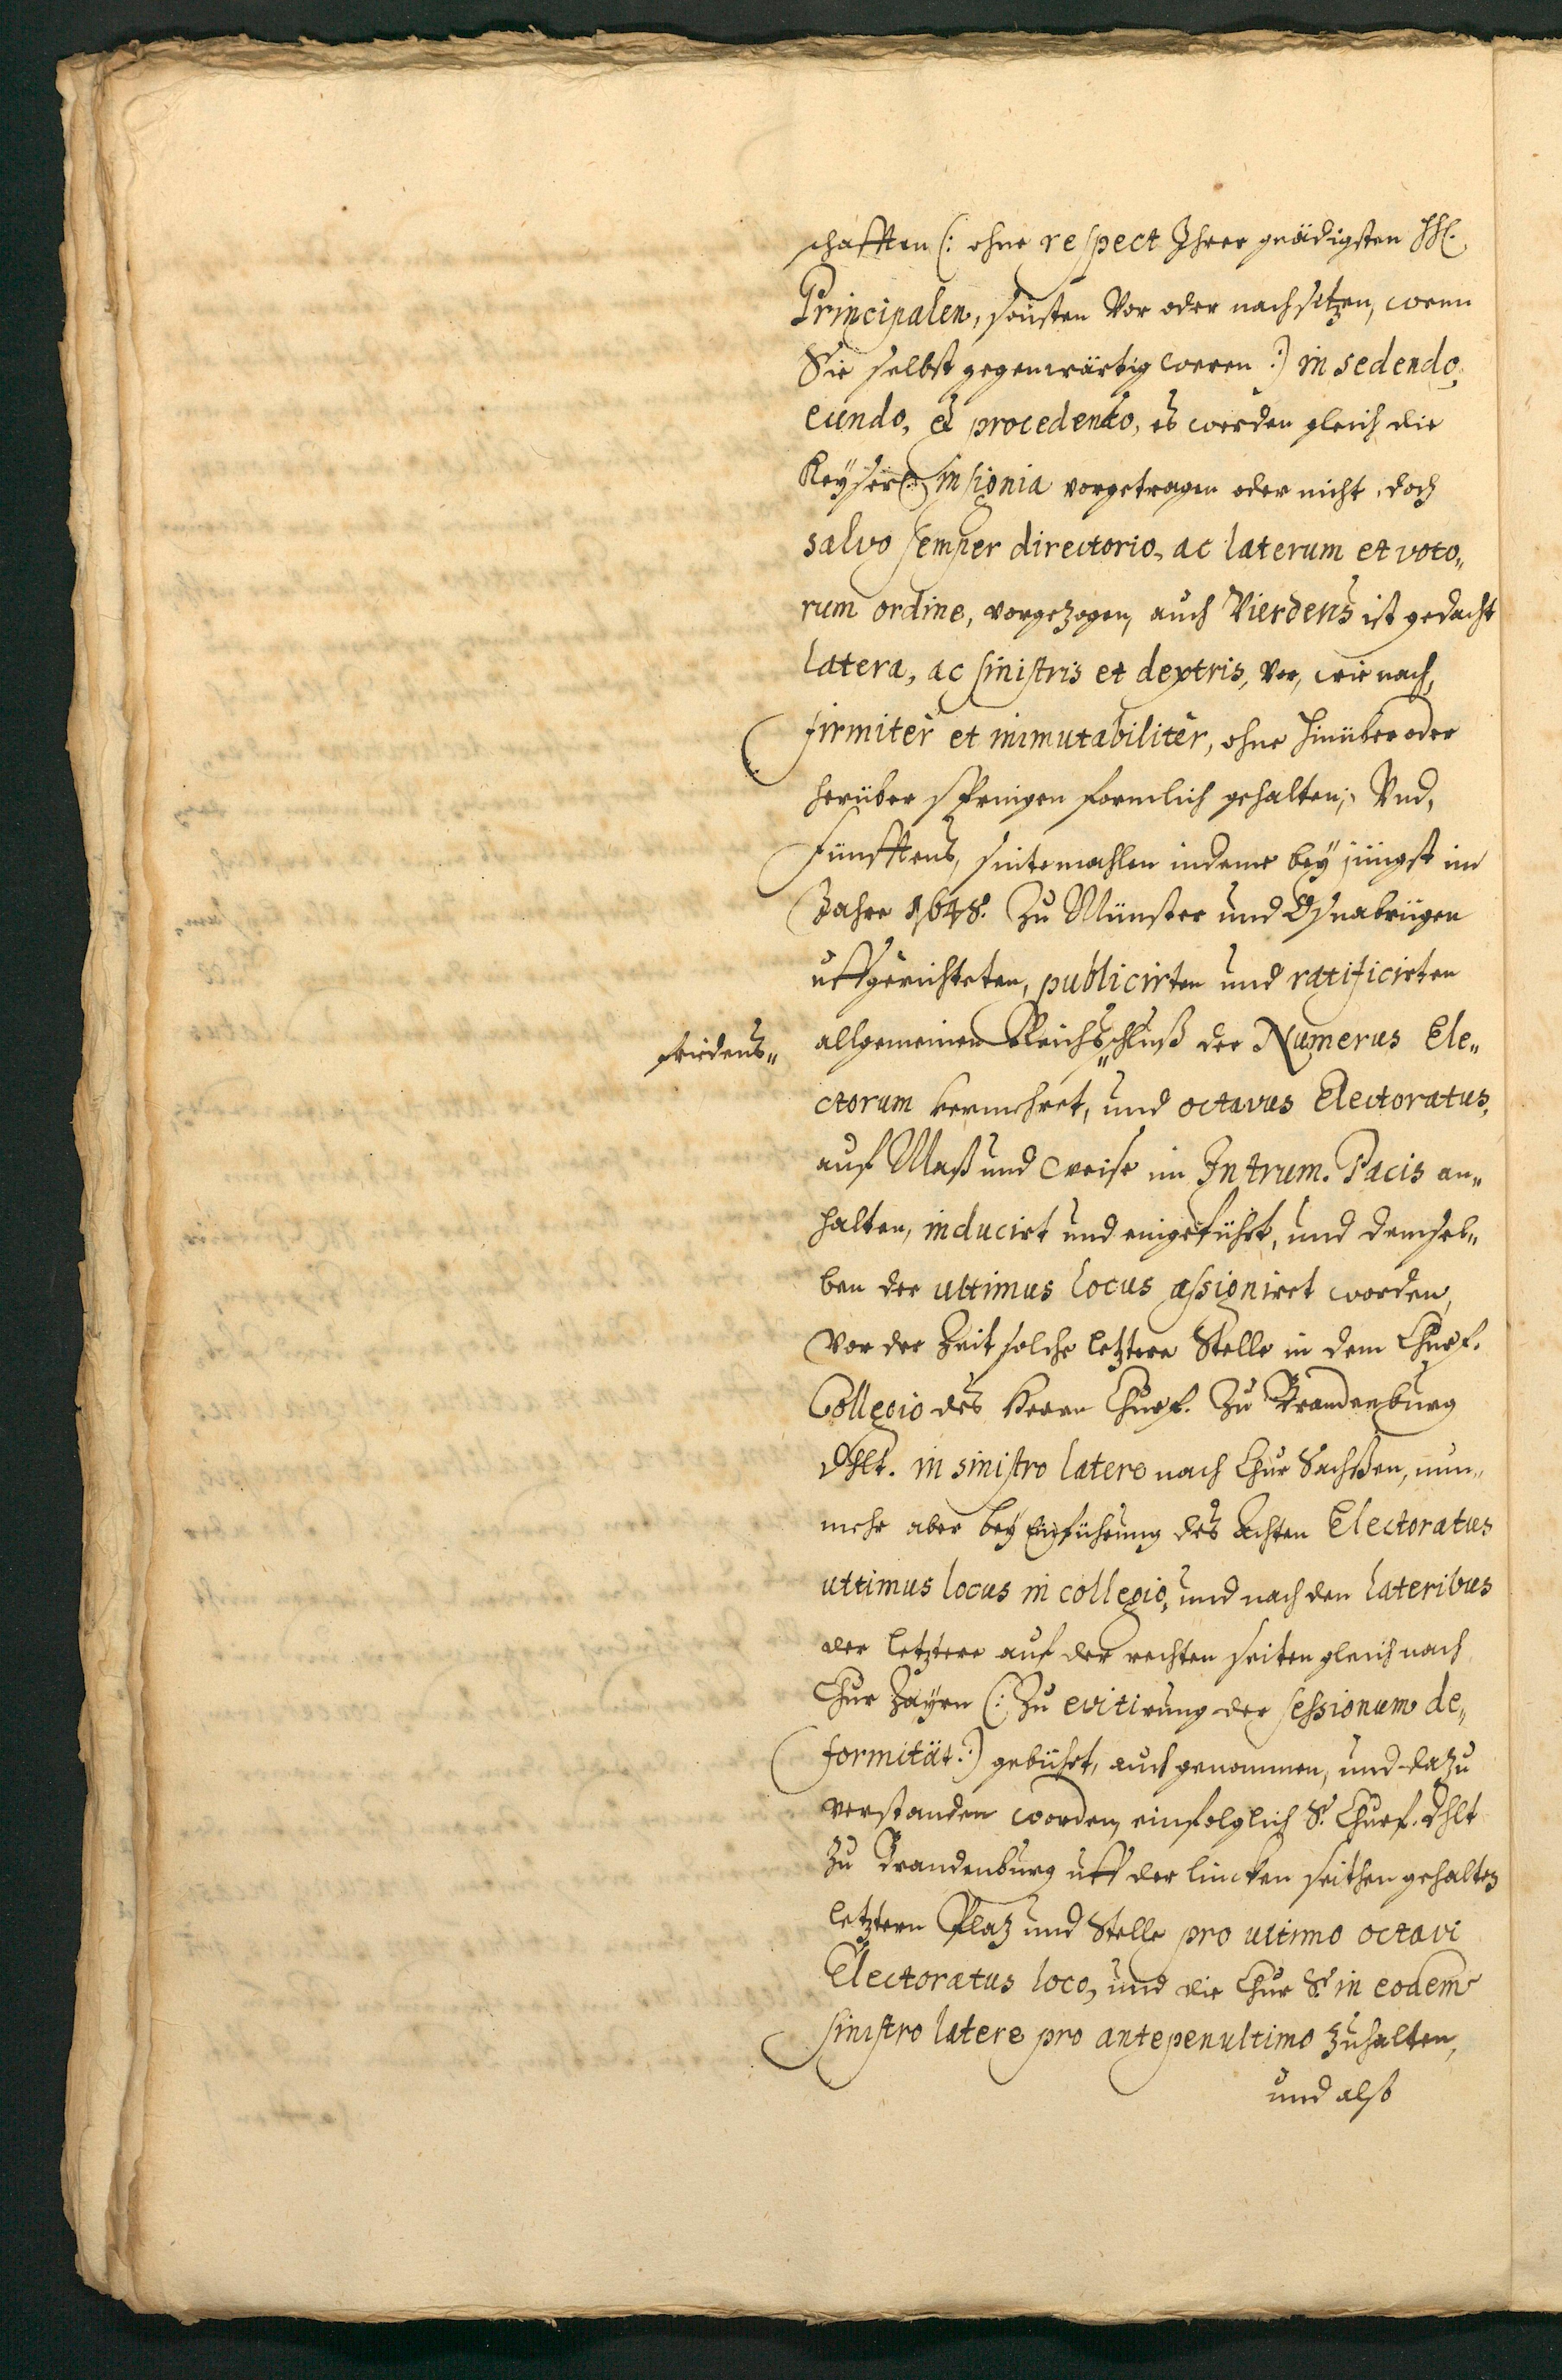 schafften (: ohne respect Ihrer gnädigsten HH.
Principalen, sonsten Vor oder nachsitzen, wenn
Sie selbst gegenwärtig weren :) in sedendo,
eundo, et procedendo, es werden gleich die
Keyserl: Insignia vorgetragen oder nicht, doch
salvo semper directorio, ac laterum et voto„
rum ordine, vorgezogen, auch Vierdens ist gedacht
latera, ac sinistris et dextris, Vor, wie nach,
firmiter et immutabiliter, ohne hinüber oder
herüber springen formlich gehalten; Vnd,
Fünfftens, sintemahlen indeme bey jüngst im
Jahre 1648. zu Münster und Oßnabrügen
uffgerichteten, publicirten und ratificirten
friedens„
allgemeinen Reichs„schluß der Numerus Ele„
ctorum vermehret, und octavus Electoratus,
auf Maß und weise im Intrum. Pacis en„
halten, inducirt und eingeführt, und demsel„
ben der ultimus locus assigniret worden,
Vor der Zeit solche letztere Stelle in dem Churf.
Collegio des Herrn Churf. zu Brandenburg
Dhlt. in sinistro latere nach Chur Sachßen, nun„
mehr aber bey Einführung des Achten Electoratus
ultimus locus in collegio, und nach den lateribus
der letztere auf der rechten seiten gleich nach
Chur Bayrn (: zu evitirung der sessionum de„
formität :) gebührt, auch genommen, und dazu
verstanden worden, einfolglich S. Churf. Dhlt
zu Brandenburg uff der lincken seithen gehalten
letztern Platz und Stelle pro ultimo octavi
Electoratus loco, und die Chur S. in eodem
sinistro latere pro antepenultimo zuhalten,
und also